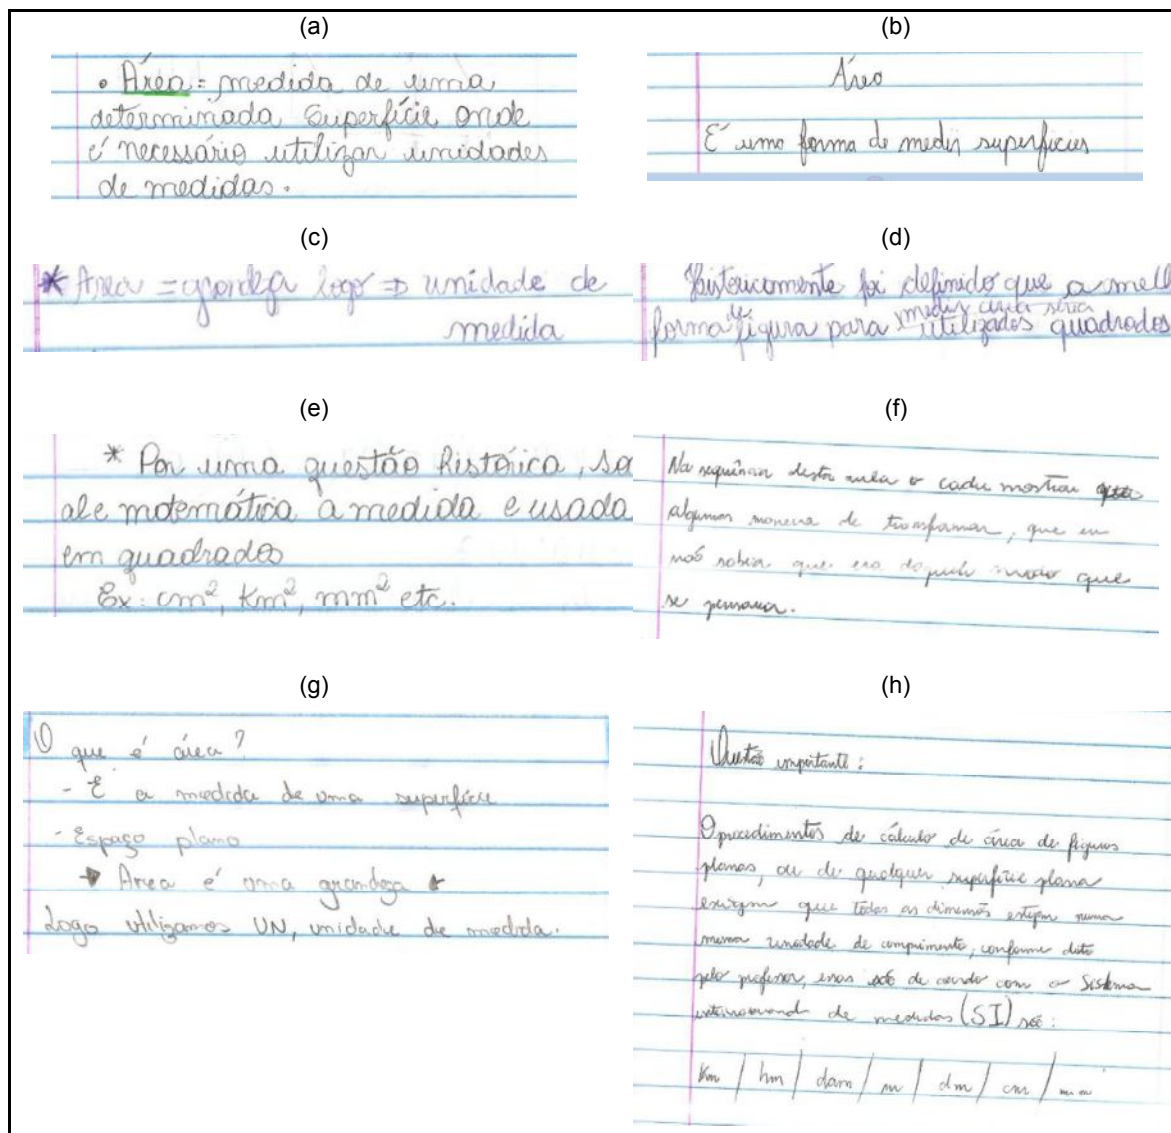 (a)
• Área = medida de uma
determinada superfície onde
é necessário utilizar unidades
de medidas.
(b)
Área
É uma forma de medir superficies
(c)
* Area = grandeza logo ⇒ unidade de
medida
(d)
Historicamente foi definido que a melh
forma de figura para medir área séria
utilizados quadrados
(e)
* Por uma questão histórica, so
ale motemática a medida e usada
em quadrados
Ex: cm², Km², mm² etc.
(f)
Na sequência desta aula o cadu mostrou
algumas maneira de transformar, que eu
não sabia que era daquele modo que
se pensava.
(g)
O que é área?
- É a medida de uma superfície
- Espaço plano
Area é uma grandeza
Logo utilizamos UN, unidade de medida.
(h)
Questão importante:
O procedimentos de cálculo de área de figuras
planas, ou de qualquer superfície plana
exigem que todas as dimensões estejam numa
mesma unidade de comprimento, conforme dito
pelo professor, essas de acordo com o Sistema
internacional de medidas (SI) são:
Km / hm / dam / m / dm / cm / mm